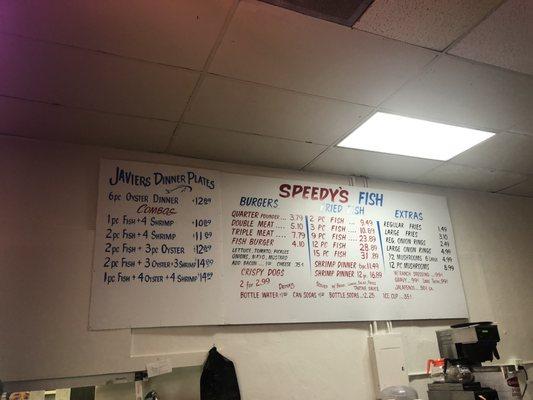 JAVIERS DINNER PLATES
6pc OYSTER DINNER $12.89
COMBOS
1pc FISH + 4 SHRIMP $10.89
2pc FISH + 4 SHRIMP $11.69
2pc FISH + 3pc OYSTER $12.89
2pc FISH + 3 OYSTER + 3 SHRIMP $14.89
1pc FISH + 4 OYSTER + 4 SHRIMP $14.89
SPEEDY'S FISH
BURGERS
QUARTER POUNDER... 3.79
DOUBLE MEAT.... 5.10
TRIPLE MEAT.... 7.79
FISH BURGER 4.10
LETTUCE, TOMATO, PICKLES
ONIONS, MAYO, MUSTARD
ADD BACON CHEESE .35¢
CRISPY DOGS
2 for 2.99
DRINKS
BOTTLE WATER CAN SODAS BOTTLE SODAS...2.25 ICE CUP...35¢
FRIED FISH
2 PC FISH. 9.49
3 PC FISH.. 10.89
9 PC FISH... 23.89
12 PC FISH.. 28.89
15 PC FISH. 31.89
SHRIMP DINNER 6pc. 11.49
SHRIMP DINNER 12 pc. 16.89
TARTAR SAUCE
EXTRAS
REGULAR FRIES
LARGE FRIES
REG. ONION RINGS
LARGE ONION RINGS 4.99
MUSHROOMS
12 PC MUSHROOMS 8.99
RANCH DRESSING
GRAVY
JALAPENOS